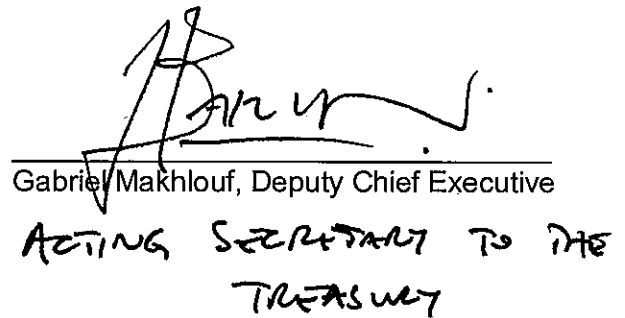 Gabriel Makhlouf, Deputy Chief Executive
ACTING SECRETARY TO THE
TREASURY